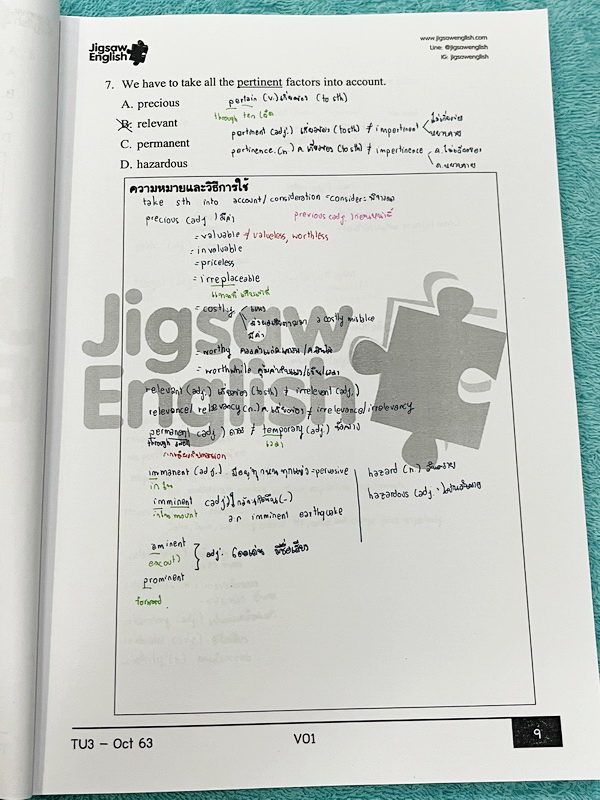 Jigsaw
English
www.jigsawenglish.com
Line: @jigsawenglish
IG: jigsawenglish
7. We have to take all the pertinent factors into account.
A. precious
B. relevant
C. permanent
D. hazardous
pertain (v.) เกี่ยวข้อง (to sth)
through ten
pertinent (adj.) เกี่ยวข้อง (to sth) ≠ impertinent ไม่เกี่ยวข้อง
หยาบคาย
pertinence (n.) ค.เกี่ยวข้อง (to sth) ≠ impertinence ค.ไม่เกี่ยวข้อง
ค.หยาบคาย
ความหมายและวิธีการใช้
take sth into account/consideration = consider = พิจารณา
precious (adj.) มีค่า previous (adj.) ก่อนหน้านี้
= valuable ≠ valueless, worthless
= invaluable
= priceless
= irreplaceable
= costly แพง
a costly mistake
มีค่า
= worthy
= worthwhile
relevant (adj.) เกี่ยวข้อง (to sth) ≠ irrelevant (adj.)
relevance/relevancy (n.) ค.เกี่ยวข้อง ≠ irrelevance/irrelevancy
permanent (adj.) ถาวร ≠ temporary (adj.) ชั่วคราว
through เวลา
immanent (adj.) = pervasive
in ใน
imminent (adj.)
mount an imminent earthquake
eminent
ex(out)
adj. โดดเด่น มีชื่อเสียง
prominent
forward
hazard (n.) อันตราย
hazardous (adj.) เป็นอันตราย
Jigsaw
English
TU3 – Oct 63
V01
9